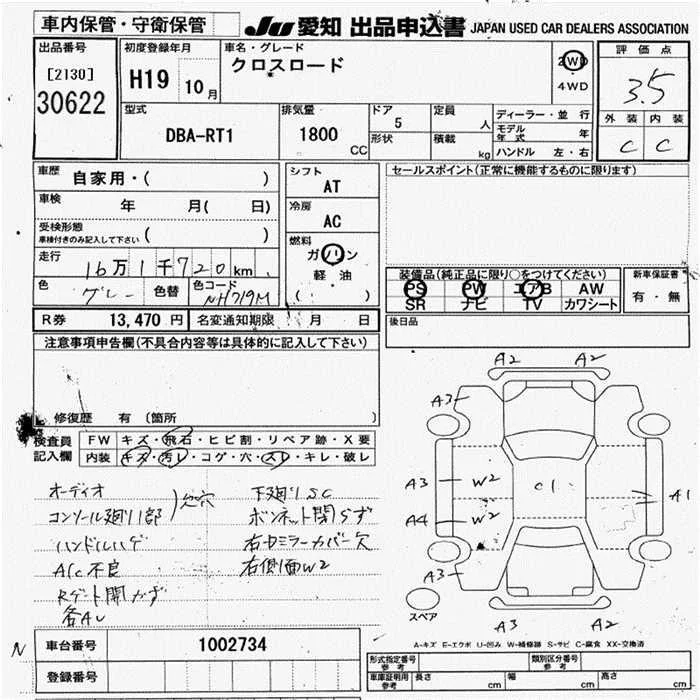 車内保管・守衛保管 JU 愛知 出品申込書 JAPAN USED CAR DEALERS ASSOCIATION
出品番号
[2130]
30622
初度登録年月
H19 10月
車名・グレード
クロスロード
2WD
4WD
評価点
3.5
外装 内装
C C
型式
DBA-RT1
排気量
1800 CC
ドア
5
形状
定員
人
積載
kg
ディーラー・並行
モデル年式 年
ハンドル 左・右
車歴
自家用・( )
車検
年 月( 日)
受検形態
車検付きのみ記入して下さい ( )
走行
16万1千720km
色
グレー
色替
色コード
NH719M
シフト
AT
冷房
AC
燃料
ガソリン
軽・油
( )
セールスポイント(正常に機能するものに限ります)
装備品(純正品に限り○をつけてください)
PS PW エアB AW
SR ナビ TV カワシート
新車保証書
有・無
R券 13,470 円 名変通知期限 月 日
後日品
注意事項申告欄(不具合内容等は具体的に記入して下さい)
修復歴 有 〔箇所 〕
検査員記入欄
FW キズ・飛石・ヒビ割・リペア跡・X要
内装 キズ・汚レ・コゲ・穴・スレ・キレ・破レ
オーディオ
コンソール廻り1部
ハンドルハゲ
A/C不良
Rゲート開かず
各AU
下廻りSC
ボンネット閉らず
右セミラーカバー欠
右側面W2
A2 A2
A3
A3 W2
A4 W2
C1
A1
A3
A3 A2
スペア
A-キズ E-エクボ U-凹み W-補修跡 S-サビ C-腐食 XX-交換済
N
車台番号 1002734
登録番号
形式指定番号 参考
類別区分番号 参考
車庫証明用 参考
長さ cm
幅 cm
高さ cm